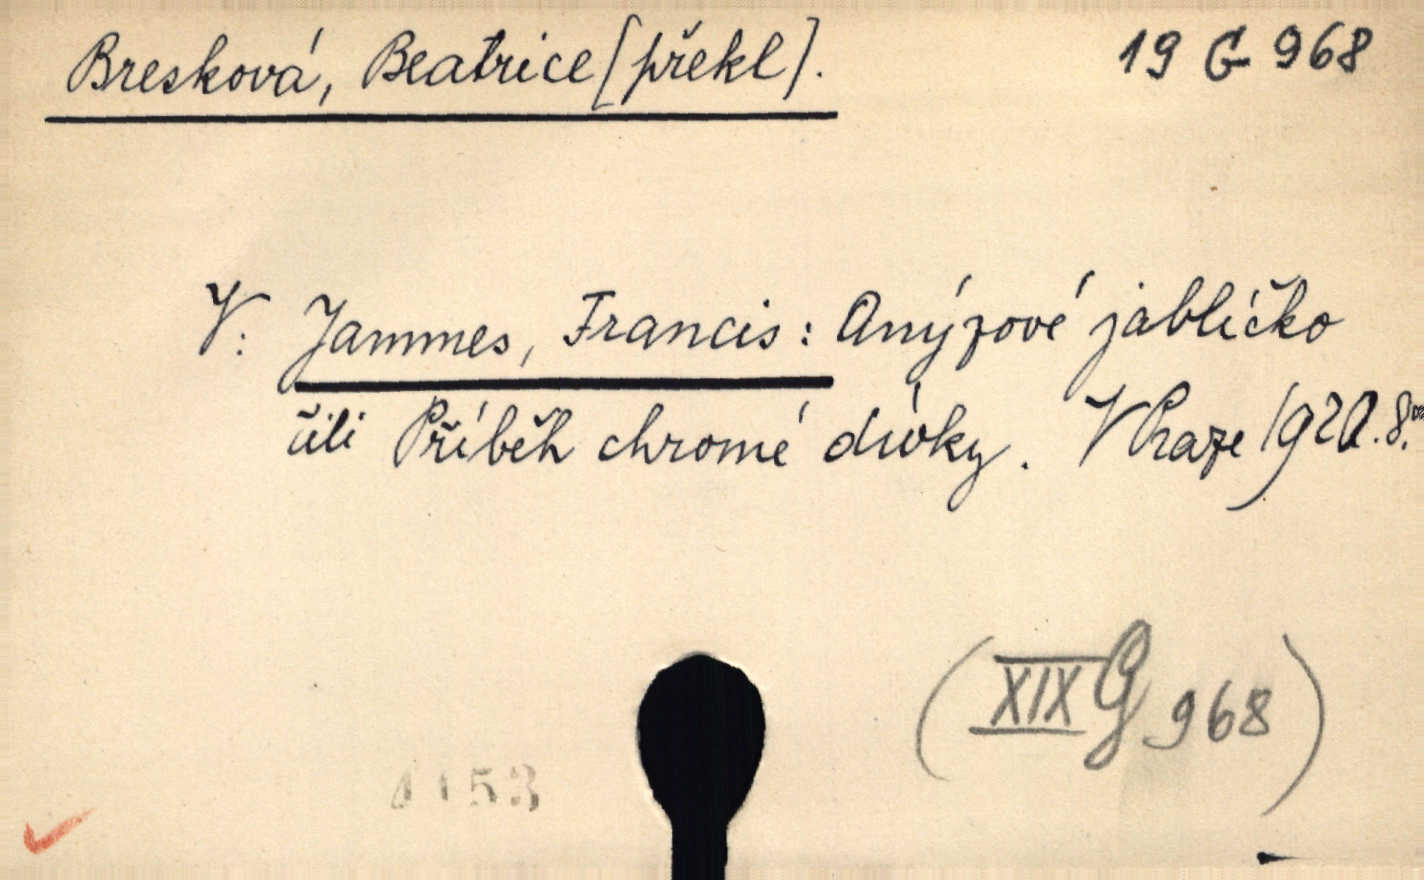 Bresková, Beatrice [překl].
19 G 968
V: Jammes, Francis: Anýzové jablíčko
čili Příběh chromé dívky. V Praze 1920. 8.°
(XIX G 968)
1153